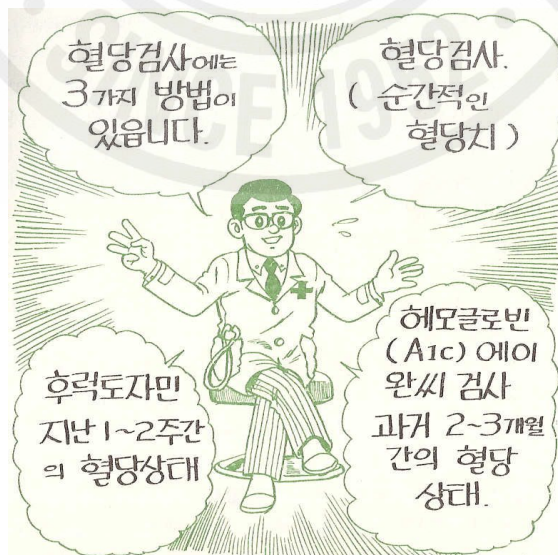 SINCE 19
혈당검사에는
3가지 방법이
있읍니다.
혈당검사.
( 순간적인
혈당치 )
후럭도자민
지난 1~2주간
의 혈당상태
헤모글로빈
(A1c) 에이
완씨 검사
과거 2~3개월
간의 혈당
상태.